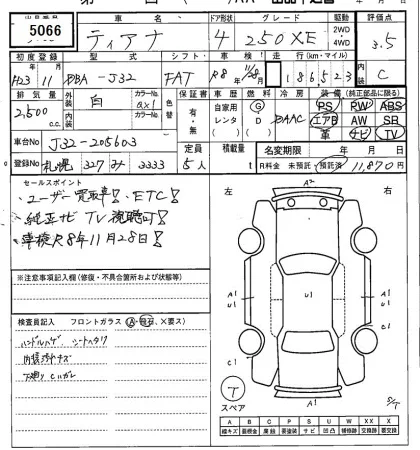 出品番号 車名 ドア形状 グレード 駆動 評価点
5066 ティアナ 4 250XE 2WD 4WD 3.5
初度登録 型式 シフト 車検 走行(km・マイル) 内装
H23 11 DBA-J32 FAT R8 11/28 186,523 C
排気量 外装 カラーNo. 色替 保証書 車歴 燃料 冷房 装備(純正部品に限る)
2,500 c.c. 白 内装 カラーNo. 有・無 自家用 レンタ G D AAC PS PW ABS
エアB AW SB
革 ナビ TV
車台No J32-205603
定員 積載量 名変期限 年 月 日
登録No 札幌 327 み 3333 5人 t R料金 未預託 預託済 11,870円
セールスポイント
・ユーザー買取車! ETC!
・純正ナビ TV視聴可!
・車検R8年11月28日!
左 右
A2
A1 U1 U1 A1
C1 C1
A1
※注意事項記入欄(修復・不具合箇所および状態等)
検査員記入 フロントガラス(A・飛石、X要ス)
ハンドルハゲ シートヘタリ
内装汚キズ
下廻りCハガレ
T
スペア
A B C P S U W X XX
線キズ 要交換 交換済